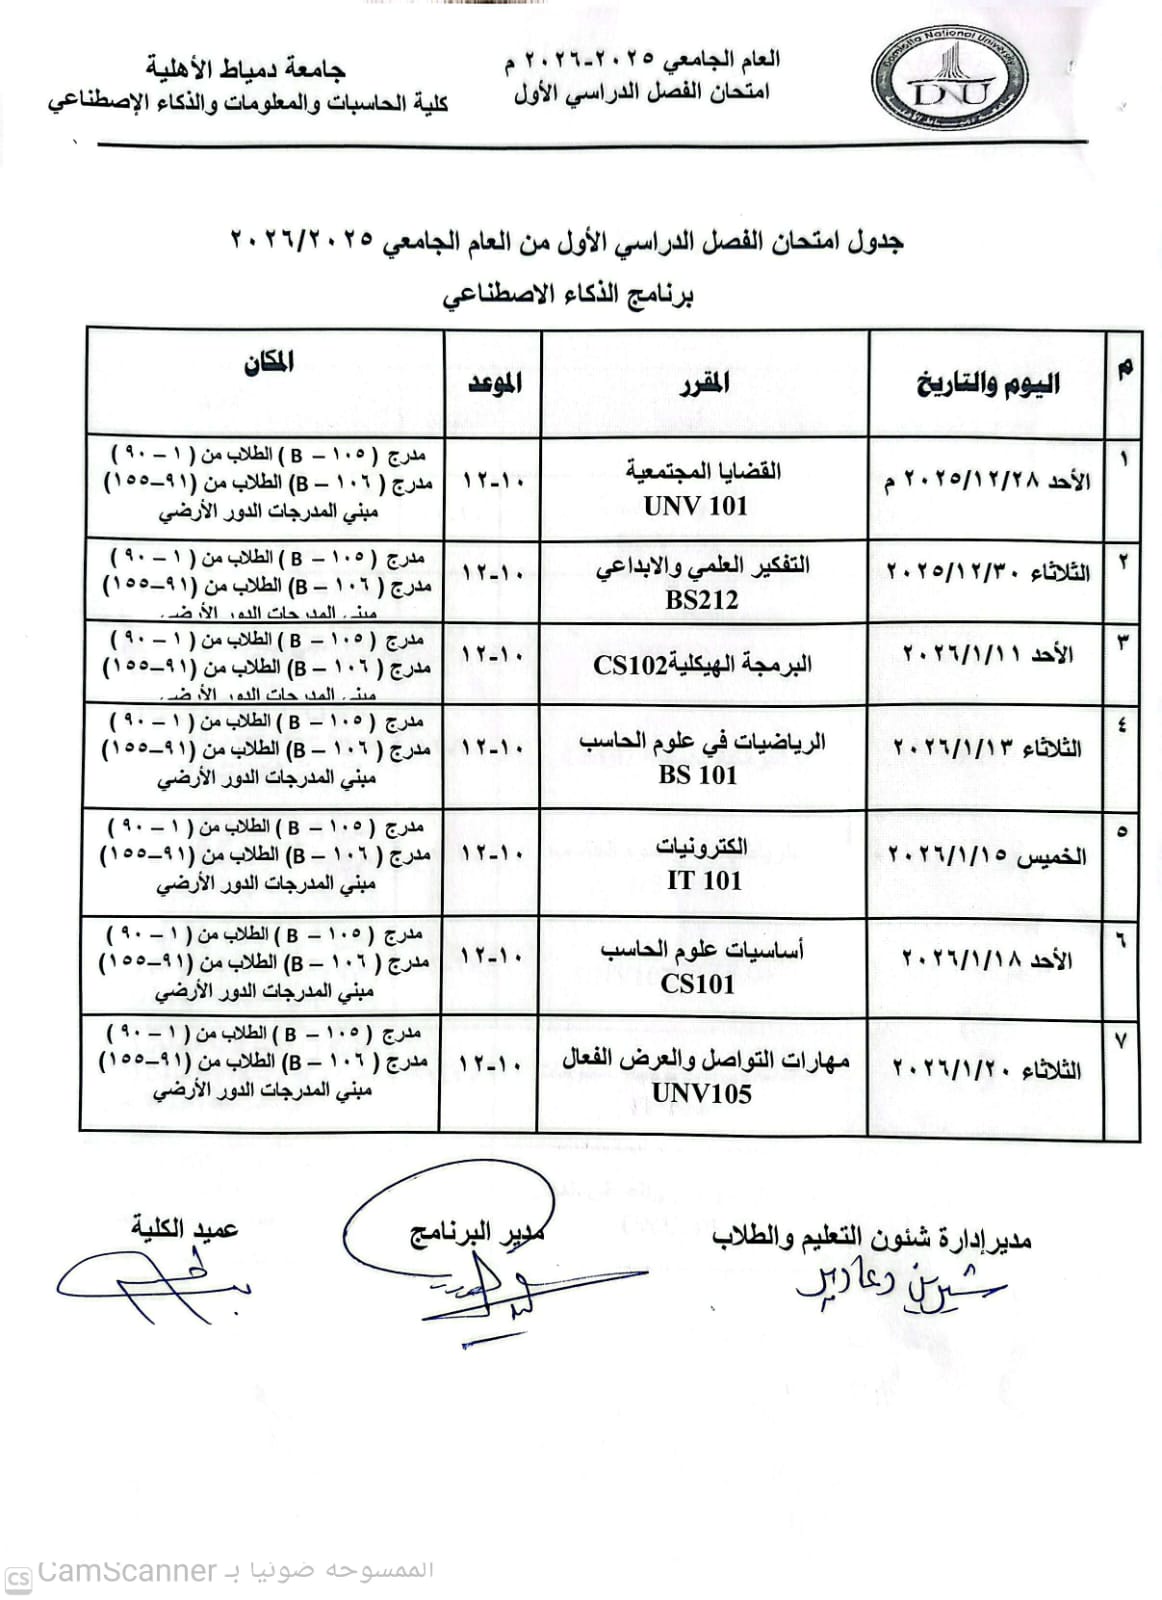 Damietta National University
DNU
العام الجامعي ٢٠٢٥-٢٠٢٦ م
امتحان الفصل الدراسي الأول
جامعة دمياط الأهلية
كلية الحاسبات والمعلومات والذكاء الإصطناعي
جدول امتحان الفصل الدراسي الأول من العام الجامعي ٢٠٢٦/٢٠٢٥
برنامج الذكاء الاصطناعي
م اليوم والتاريخ المقرر الموعد المكان
١ الأحد ٢٠٢٥/١٢/٢٨ م
القضايا المجتمعية
UNV 101
١٠-١٢
مدرج ( B – ١٠٥ ) الطلاب من ( ١ – ٩٠ )
مدرج ( B – ١٠٦) الطلاب من (٩١–١٥٥)
مبني المدرجات الدور الأرضي
٢ الثلاثاء ٢٠٢٥/١٢/٣٠
التفكير العلمي والابداعي
BS212
١٠-١٢
مدرج ( B – ١٠٥ ) الطلاب من ( ١ – ٩٠ )
مدرج ( B – ١٠٦) الطلاب من (٩١–١٥٥)
مبني المدرجات الدور الأرضي
٣ الأحد ٢٠٢٦/١/١١
البرمجة الهيكليةCS102
١٠-١٢
مدرج ( B – ١٠٥ ) الطلاب من ( ١ – ٩٠ )
مدرج ( B – ١٠٦) الطلاب من (٩١–١٥٥)
مبني المدرجات الدور الأرضي
٤ الثلاثاء ٢٠٢٦/١/١٣
الرياضيات في علوم الحاسب
BS 101
١٠-١٢
مدرج ( B – ١٠٥ ) الطلاب من ( ١ – ٩٠ )
مدرج ( B – ١٠٦) الطلاب من (٩١–١٥٥)
مبني المدرجات الدور الأرضي
٥ الخميس ٢٠٢٦/١/١٥
الكترونيات
IT 101
١٠-١٢
مدرج ( B – ١٠٥ ) الطلاب من ( ١ – ٩٠ )
مدرج ( B – ١٠٦) الطلاب من (٩١–١٥٥)
مبني المدرجات الدور الأرضي
٦ الأحد ٢٠٢٦/١/١٨
أساسيات علوم الحاسب
CS101
١٠-١٢
مدرج ( B – ١٠٥ ) الطلاب من ( ١ – ٩٠ )
مدرج ( B – ١٠٦) الطلاب من (٩١–١٥٥)
مبني المدرجات الدور الأرضي
٧ الثلاثاء ٢٠٢٦/١/٢٠
مهارات التواصل والعرض الفعال
UNV105
١٠-١٢
مدرج ( B – ١٠٥ ) الطلاب من ( ١ – ٩٠ )
مدرج ( B – ١٠٦) الطلاب من (٩١–١٥٥)
مبني المدرجات الدور الأرضي
مديرإدارة شئون التعليم والطلاب
مدير البرنامج
عميد الكلية
شيرين
الممسوحة ضوئيا بـ CamScanner
CS